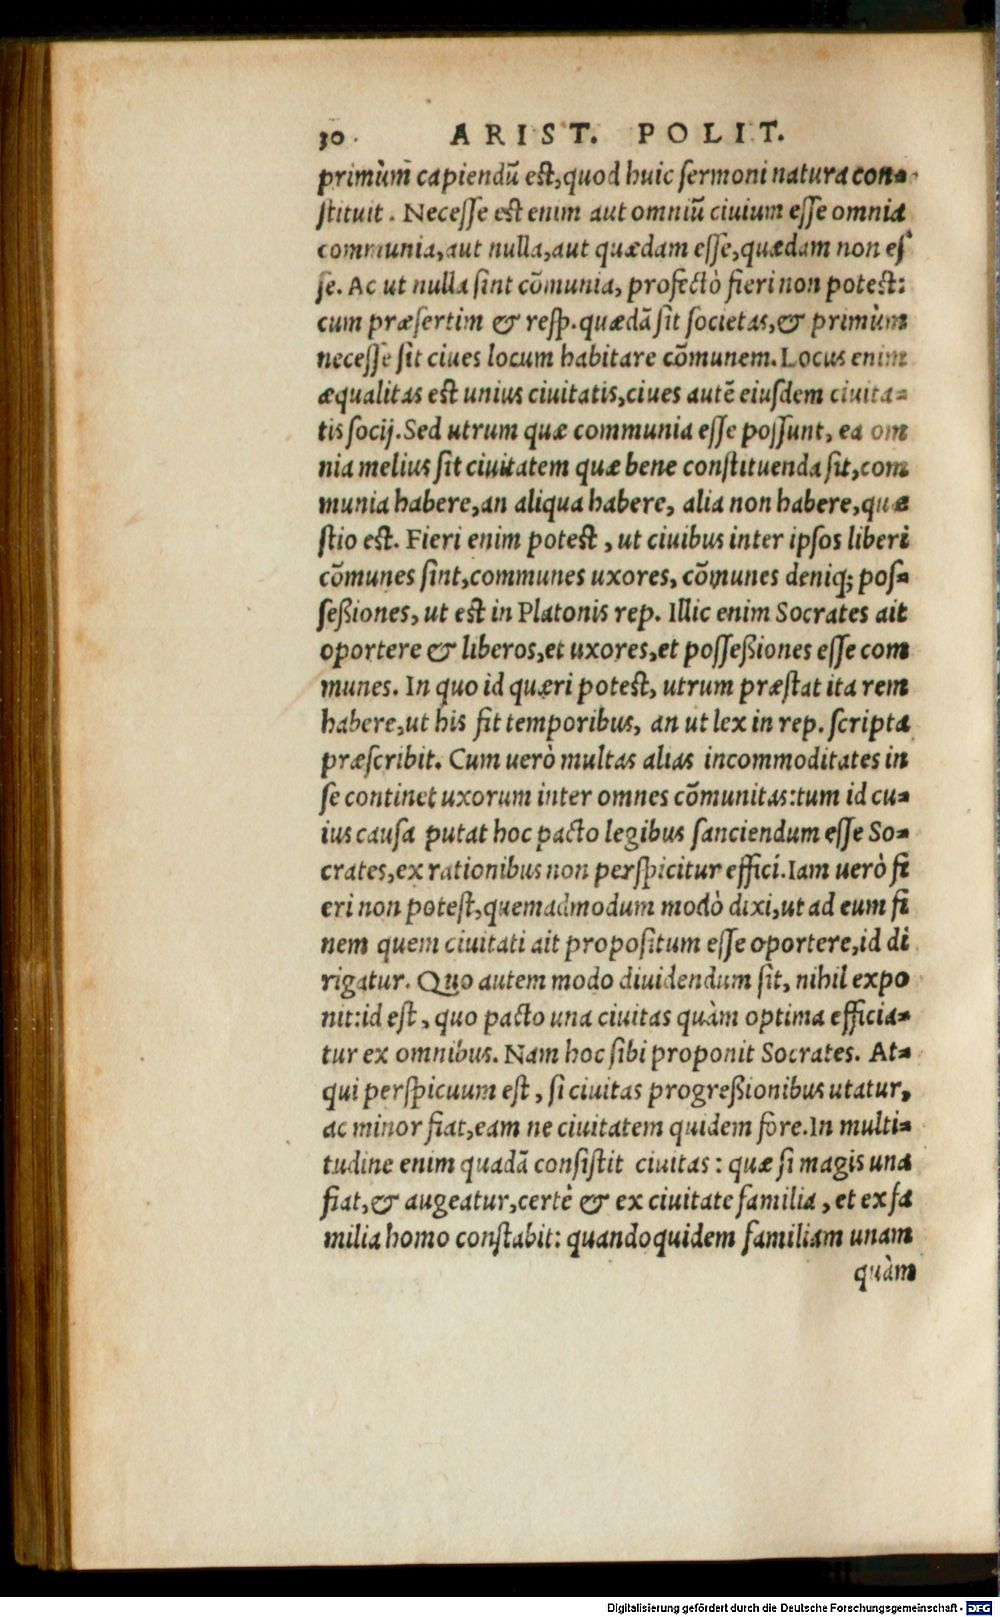 30. ARIST. POLIT.
primùm̃ capiendũ est, quod huic sermoni natura con-
stituit. Necesse est enim aut omniũ ciuium esse omnia
communia, aut nulla, aut quædam esse, quædam non es
se. Ac ut nulla sint cõmunia, profectò fieri non potest:
cum præsertim & resp. quædã sit societas, & primùm
necesse sit ciues locum habitare cõmunem. Locus enim
æqualitas est unius ciuitatis, ciues autẽ eiusdem ciuita-
tis socij. Sed utrum quæ communia esse possunt, ea om
nia melius sit ciuitatem quæ bene constituenda sit, com
munia habere, an aliqua habere, alia non habere, quæ
stio est. Fieri enim potest, ut ciuibus inter ipsos liberi
cõmunes sint, communes uxores, cõmunes deniq; pos-
seßiones, ut est in Platonis rep. Illic enim Socrates ait
oportere & liberos, et uxores, et posseßiones esse com
munes. In quo id quæri potest, utrum præstat ita rem
habere, ut his fit temporibus, an ut lex in rep. scripta
præscribit. Cum uerò multas alias incommoditates in
se continet uxorum inter omnes cõmunitas: tum id cu-
ius causa putat hoc pacto legibus sanciendum esse So-
crates, ex rationibus non perspicitur effici. Iam uerò fi
eri non potest, quemadmodum modò dixi, ut ad eum fi
nem quem ciuitati ait propositum esse oportere, id di
rigatur. Quo autem modo diuidendum sit, nihil expo
nit: id est, quo pacto una ciuitas quàm optima efficia-
tur ex omnibus. Nam hoc sibi proponit Socrates. At-
qui perspicuum est, si ciuitas progreßionibus utatur,
ac minor fiat, eam ne ciuitatem quidem fore. In multi-
tudine enim quadã consistit ciuitas: quæ si magis una
fiat, & augeatur, certè & ex ciuitate familia, et ex fa
milia homo constabit: quandoquidem familiam unam
quàm
Digitalisierung gefördert durch die Deutsche Forschungsgemeinschaft - DFG